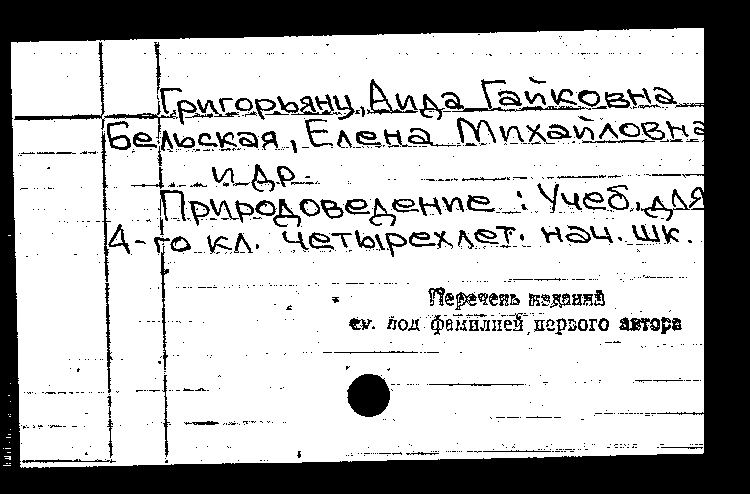 Григорьянц, Аида Гайковна
Бельская, Елена Михайловна
и др.
Природоведение : Учеб. для
4-го кл. четырехлет. нач. шк.
Перечень изданий
см. под фамилией первого автора